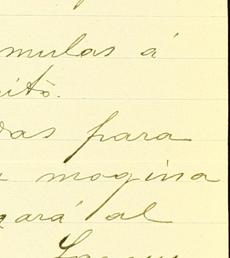 mulas á
itó.
das para
a mogina
gará al